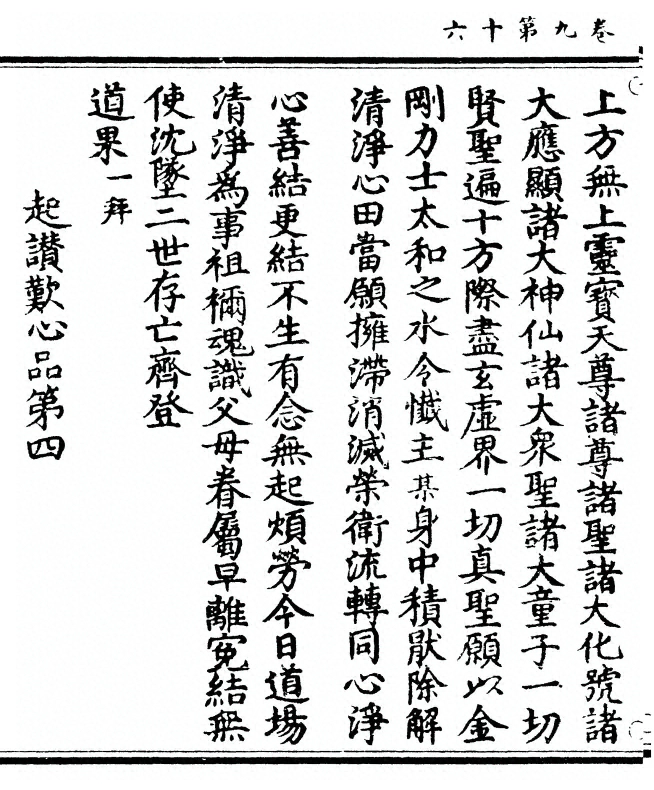 卷九第十六
上方無上靈寶天尊諸尊諸聖諸大化號諸
大應顯諸大神仙諸大衆聖諸大童子一切
賢聖遍十方際盡玄虛界一切真聖願以金
剛力士太和之水令懺主某身中積猒除解
清淨心田當願擁滯消滅榮衛流轉同心淨
心善結更結不生有念無起煩勞今日道場
清淨為事祖禰魂識父母眷屬早離冤結無
使沈墜二世存亡齊登
道果一拜
起讚歎心品第四